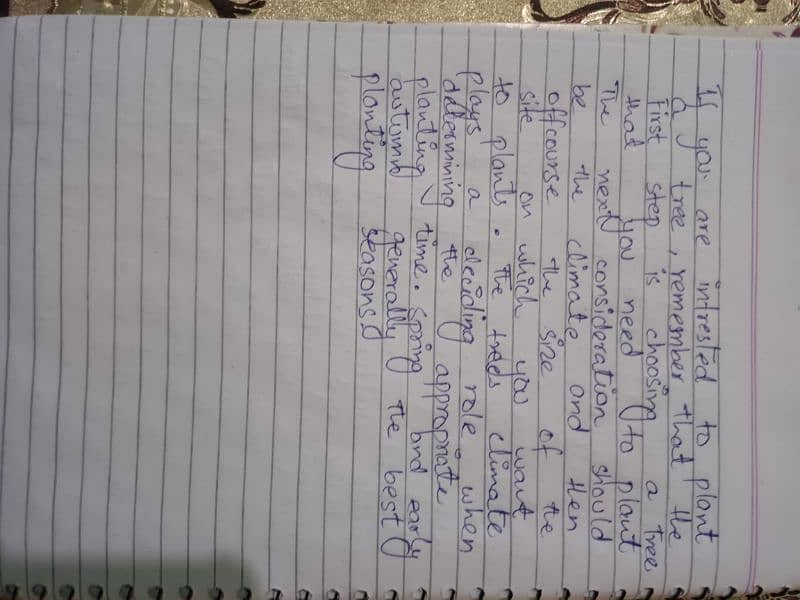 If you are intrested to plant
a tree, remember that the
first step is choosing a tree
that you need to plant
The next consideration should
be the climate and then
offcourse the size of the
site on which you want
to plants. The trees climate
plays a deciding role when
determining the appropriate
planting time. spring and early
autumn generally the best
planting seasons